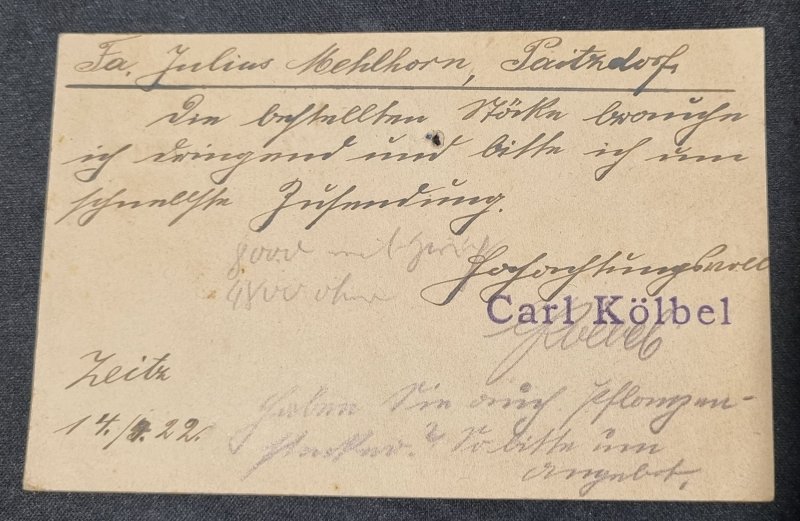 Fa. Julius Mehlhorn, Paitzdorf.
Die bestellten Stöcke brauche
ich dringend und bitte ich um
schnellste Zusendung.
8000 mit
4800 ohne
Hochachtungsvoll
Carl Kölbel
Kölbel
Zeitz
14./4. 22.
Haben Sie auch Pflanzen-
stecher? So bitte um
Angebot.